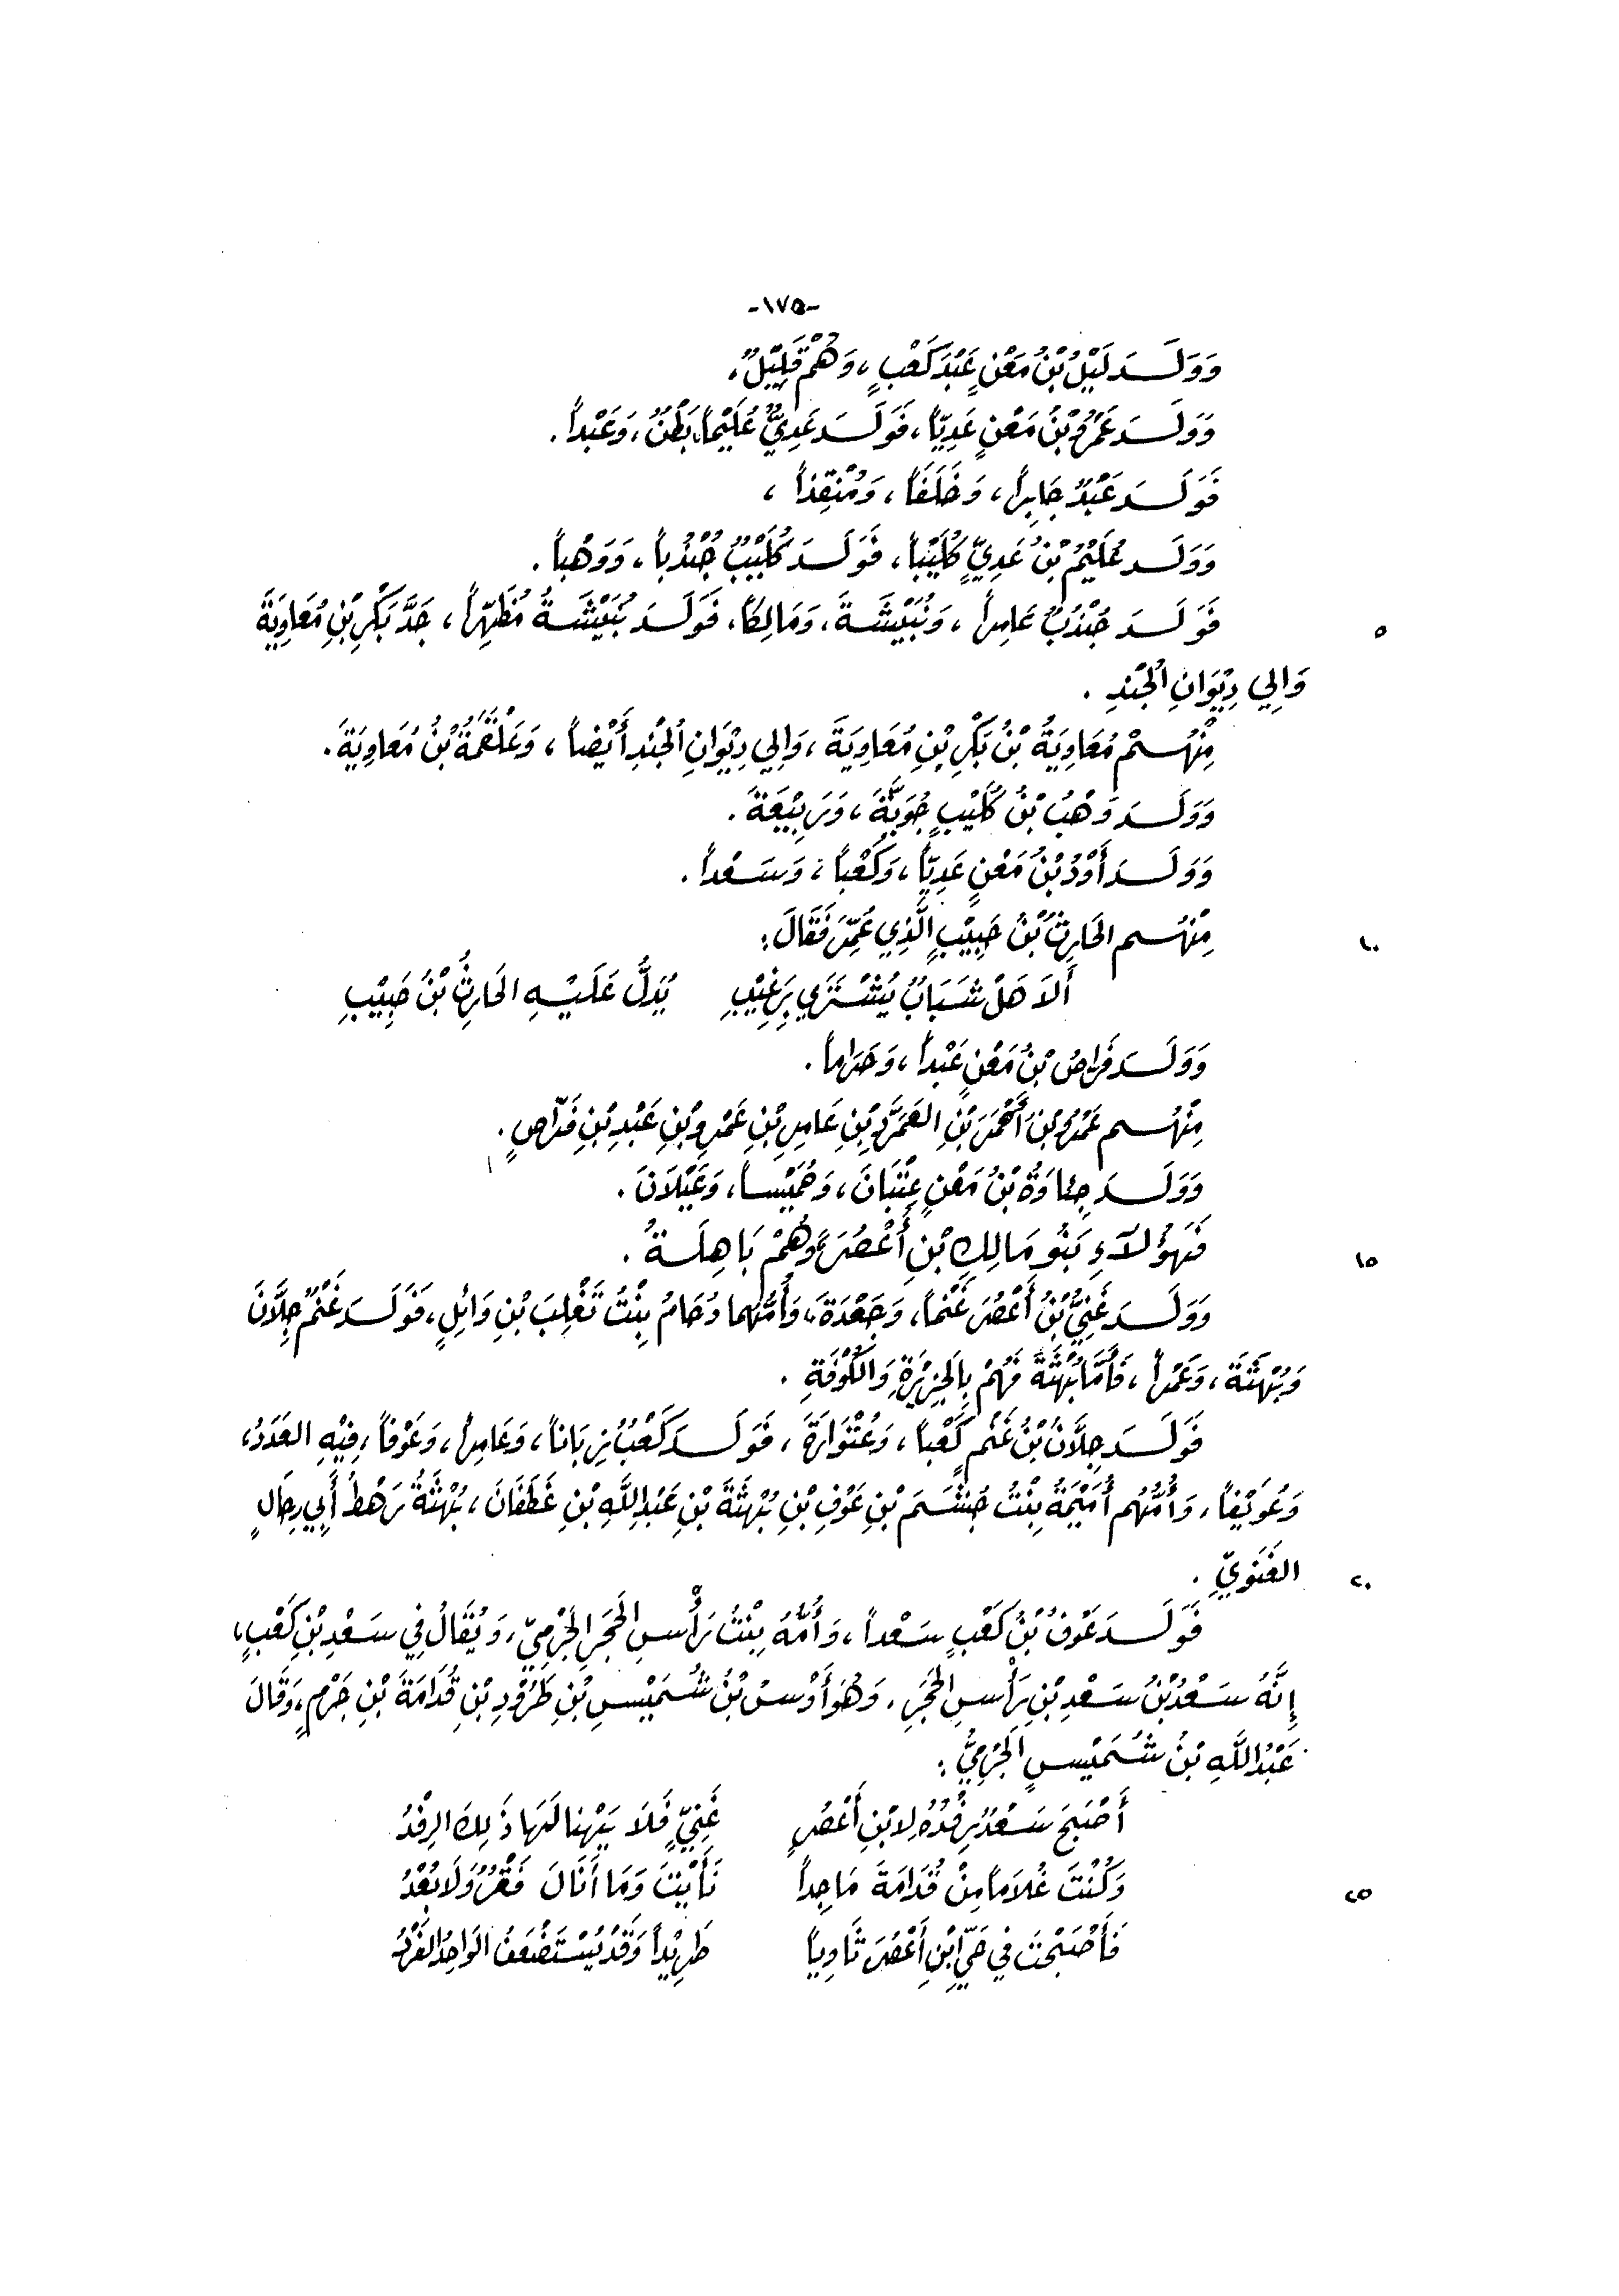 -١٧٥-
وَوَلَـدَ لَيْلُ بْنُ مَعْنٍ عَبْدَ كَعْبٍ، وَهُمْ قَلِيْلٌ،
وَوَلَـدَ عَمْرُو بْنُ مَعْنٍ عَدِيّاً، فَوَلَـدَ عَدِيٌّ عُلَيْماً، بَطْنٌ، وَعَبْداً.
فَوَلَـدَ عَبْدٌ جَابِراً، وَخَلَفاً، وَمُنْقِذاً،
وَوَلَـدَ عُلَيْمُ بْنُ عَدِيٍّ كُلَيْباً، فَوَلَـدَ كُلَيْبٌ جُنْدُباً، وَوَهْباً.
٥ فَوَلَـدَ جُنْدُبٌ عَامِراً، وَنُبَيْشَةَ، وَمَالِكاً، فَوَلَـدَ نُبَيْشَـةُ مُطَهِّراً، جَدَّ بَكْرِ بْنِ مُعَاوِيَةَ
وَالِي دِيْوَانِ الجُنْدِ.
مِنْهُـمْ مُعَاوِيَةُ بْنُ بَكْرِ بْنِ مُعَاوِيَةَ، وَالِي دِيْوَانِ الجُنْدِ أَيْضاً، وَعَلْقَمَةُ بْنُ مُعَاوِيَةَ.
وَوَلَـدَ وَهْبُ بْنُ كُلَيْبٍ جُوَيَّةَ، وَرَبِيْعَةَ.
وَوَلَـدَ أَوْدُ بْنُ مَعْنٍ عَدِيّاً، وَكَعْباً، وَسَـعْداً.
١٠ مِنْهُـم الحَارِثُ بْنُ حَبِيْبٍ الَّذِي عُمِّرَ فَقَالَ:
أَلاَ هَلْ شَـبَابٌ يُشْـتَرَي بِرَغِيْبِ يُدَلُّ عَلَيْـهِ الحَارِثُ بْنُ حَبِيْبِ
وَوَلَـدَ فَرَّاصُ بْنُ مَعْنٍ عَبْداً، وَحَرَاماً.
مِنْهُـم عَمْرُو بْنُ أَحْمَرَ بْنِ العَمَرَّدِ بْنِ عَامِرِ بْنِ عَمْرِو بْنِ عَبْدِ بْنِ فَرَّاصٍ.
وَوَلَـدَ جِئَاوَةُ بْنُ مَعْنٍ عِتْبَانَ، وَخُمَيْسـاً، وَعَيْلاَنَ.
١٥ فَهَؤُلآءِ بَنُو مَالِكِ بْنِ أَعْصُرَ، وَهُمْ بَاهِلَـةُ.
وَوَلَـدَ غَنِيُّ بْنُ أَعْصُرَ غَنْماً، وَجَعْدَةَ، وَأُمُّهُمَا دُخَامُ بِنْتُ تَغْلِبَ بْنِ وَائِلٍ، فَوَلَـدَ غَنْمٌ جِلَّانَ
وَبُهْثَةَ، وَعَمْراً، فَأَمَّا بُهْثَةُ فَهُمْ بِالجَزِيْرَةِ وَالكُوْفَةِ.
فَوَلَـدَ جِلَّانُ بْنُ غَنْمٍ كَعْباً، وَعُتْوَارَةَ، فَوَلَـدَ كَعْبٌ زِبَاناً، وَعَامِراً، وَعَوْفاً، فِيْهِ العَدَدُ،
وَعُوَيْفاً، وَأُمُّهُم أُمَيْمَةُ بِنْتُ جُشَـمَ بْنِ عَوْفِ بْنِ بُهْثَةَ بْنِ عَبْدِ اللَّهِ بْنِ غَطَفَانَ، بُهْثَةُ رَهْطُ أَبِي رِحَالٍ
٢٠ الغَنَوِيِّ.
فَوَلَـدَ عَوْفُ بْنُ كَعْبٍ سَـعْداً، وَأُمُّهُ بِنْتُ رَأْسِ الحَجَرِ الجَرْمِيِّ، وَيُقَالُ فِي سَـعْدِ بْنِ كَعْبٍ،
إِنَّهُ سَـعْدُ بْنُ سَـعْدِ بْنِ رَأْسِ الحَجَرِ، وَهُوَ أَوْسُ بْنُ شُـمَيْسِ بْنِ طَرُوْدِ بْنِ قُدَامَةَ بْنِ جَرْمٍ، وَقَالَ
عَبْدُ اللَّهِ بْنُ شُـمَيْسٍ الجَرْمِيُّ:
أَصْبَحَ سَـعْدٌ رِفْدُهُ لِابْنِ أَعْصُرٍ غَنِيٍّ فَلاَ يَهْنَا لَهَا ذَلِكَ الرِفْدُ
٢٥ وَكُنْتَ غُلاَماً مِنْ قُدَامَةَ مَاجِداً نَأَيْتَ وَمَا أَنَالَ فَقْرٌ وَلَا بُعْدُ
فَأَصْبَحْتَ فِي حَيِّ ابْنِ أَعْصُرَ ثَاوِياً طَرِيْداً وَقَدْ يُسْـتَضْعَفُ الوَاحِدُ الفَرْدُ